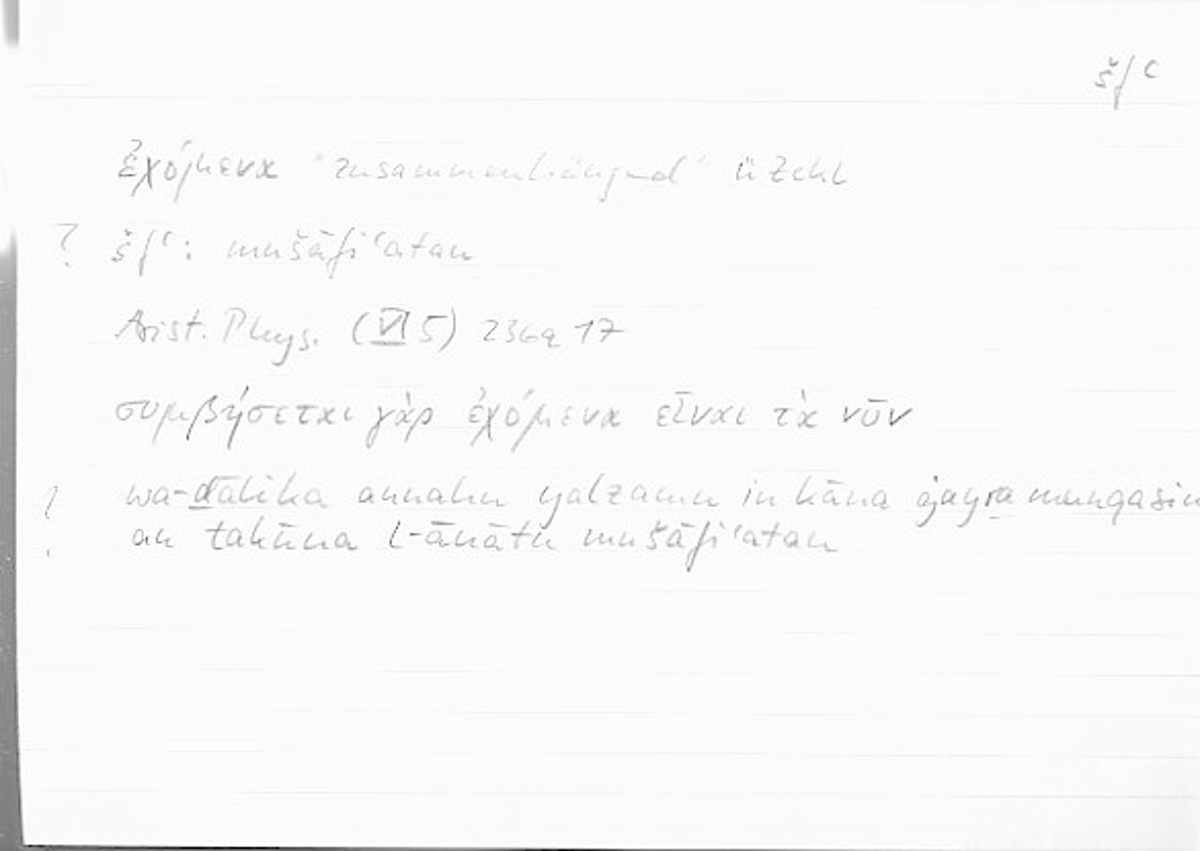 šfʿ
ἐχόμενα "zusammenhängend" ü Zchl
? šfʿ: mušāfiʿatan
Arist. Phys. (VI 5) 236a 17
συμβήσεται γὰρ ἐχόμενα εἶναι τὰ νῦν
? wa-ḏālika annahu yalzamu in kāna ġayra munqasin
an takūna l-ānātu mušāfiʿatan